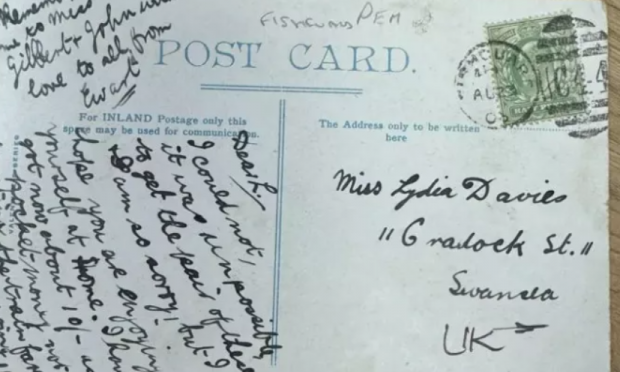 Remember
me to miss
Gilbert & John
love to all from
Ewart
FISHGUARD PEM
POST CARD.
For INLAND Postage only this
space may be used for communication.
The Address only to be written
here
AU 23
03
Dear L,
I could not,
it was impossible
to get the pair of these
I am so sorry! but I
hope you are enjoying
yourself at home. I have
got now about 10/- as
pocket money
the train
Miss Lydia Davies
"Cradock St."
Swansea
UK